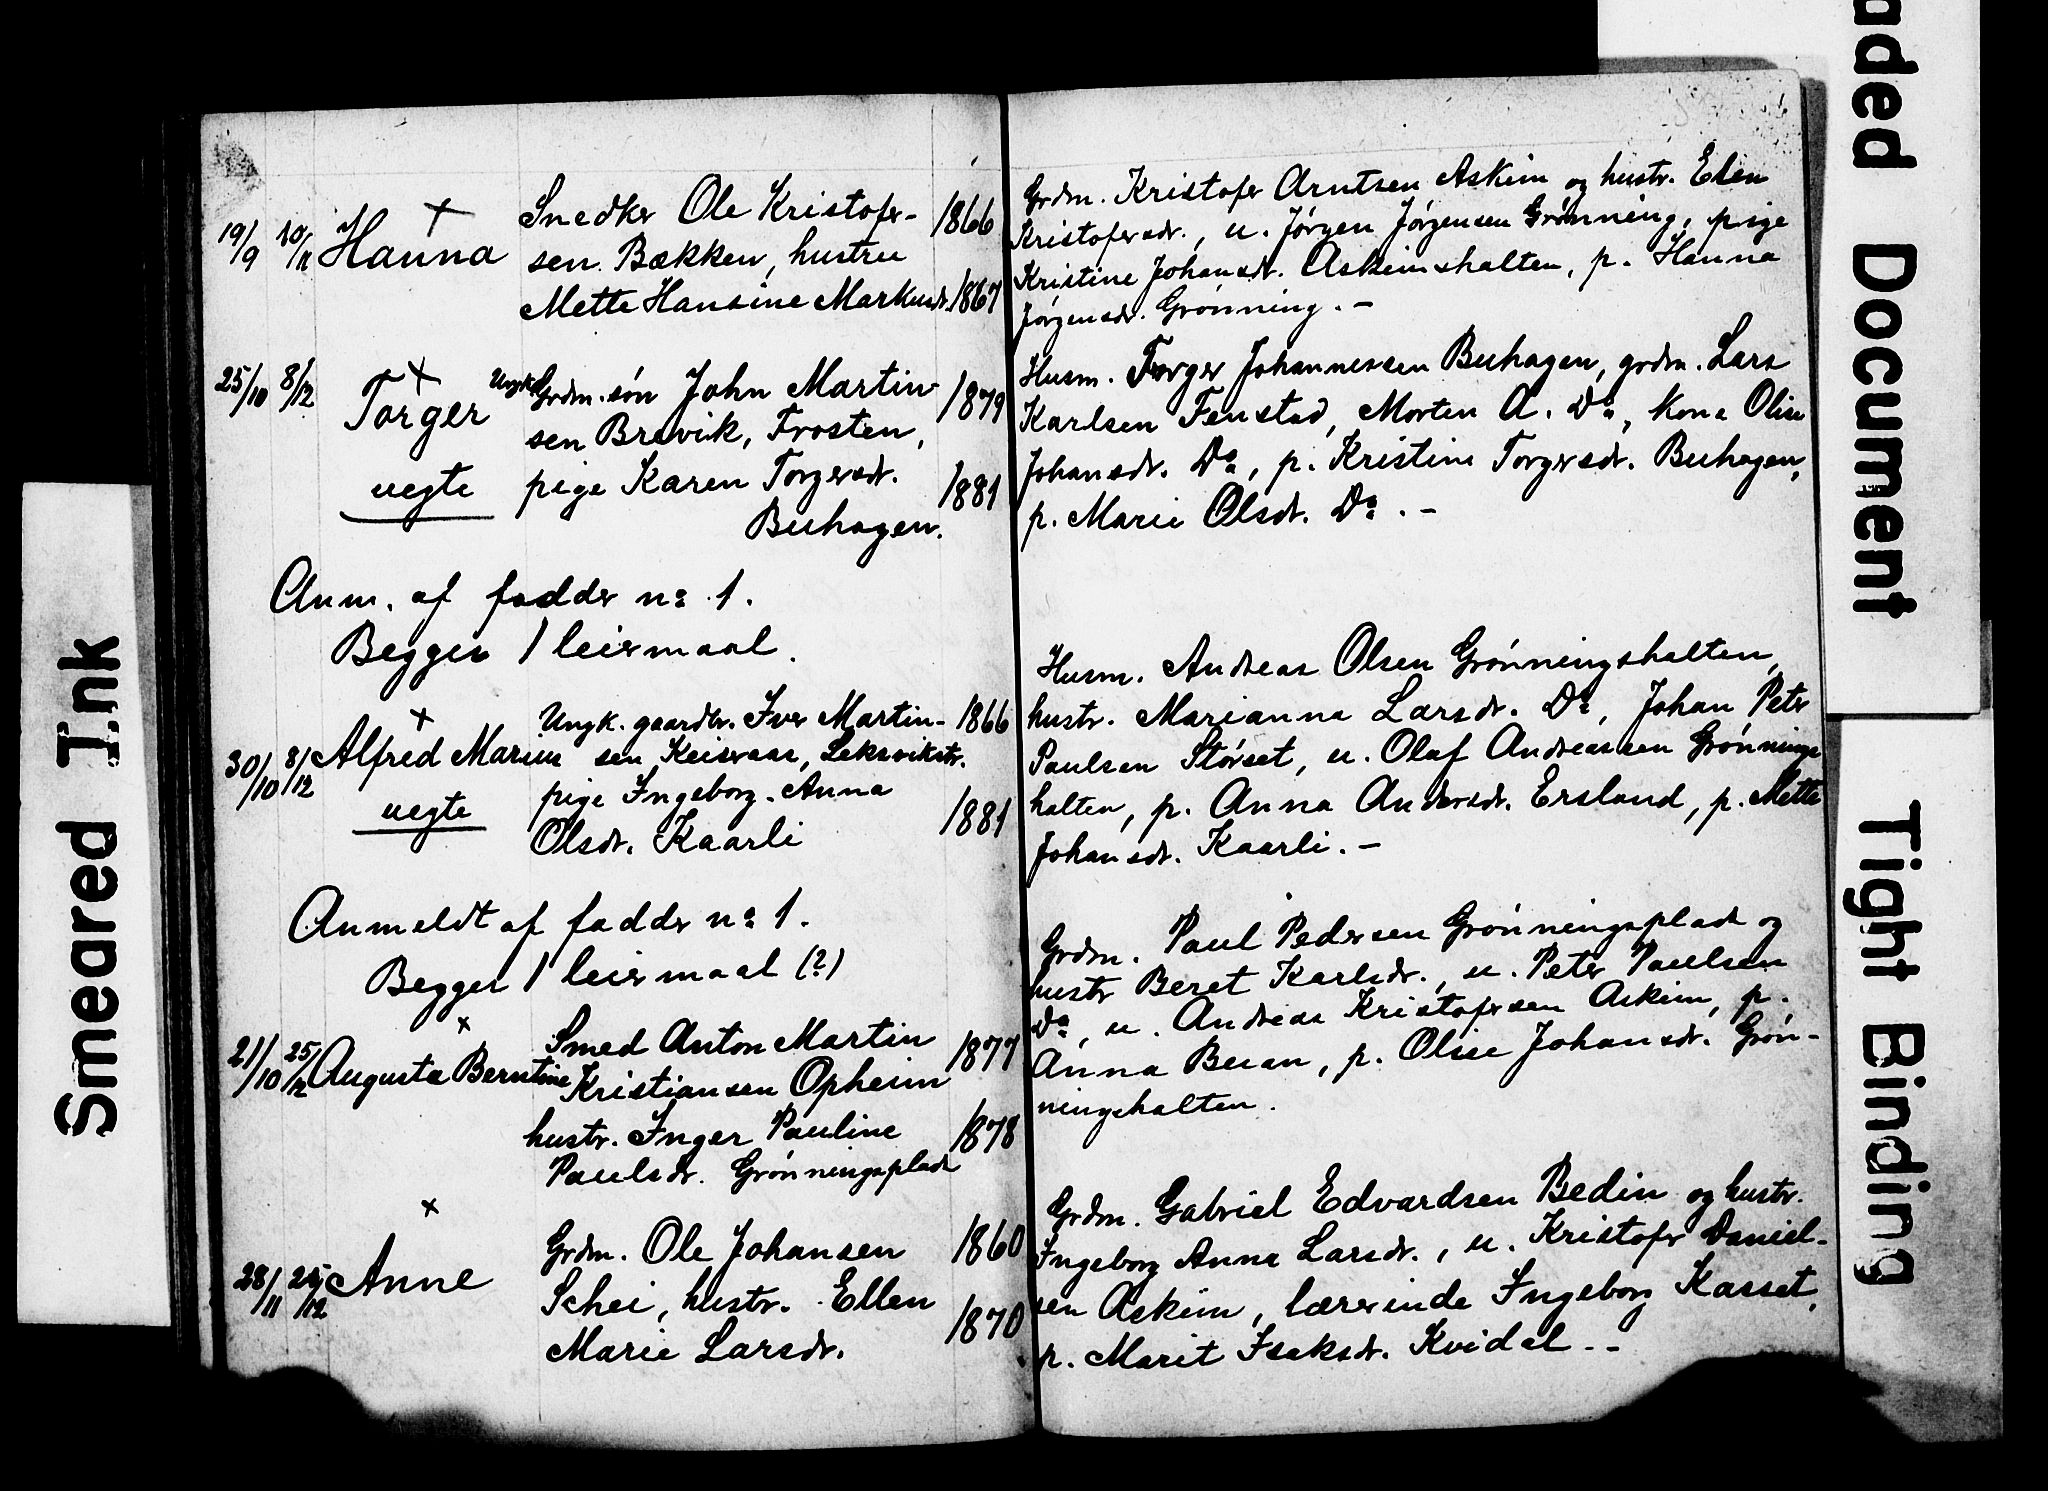 19/9 10/11 Hanna +
Snedker Ole Kristofer- 1866
sen Bækken, hustru
Mette Hansine Markusdr. 1867
Grdm. Kristofer Arntsen Askim og hustr. Elen
Kristofersdr., u. Jörgen Jörgensen Grönning, pige
Kristine Johansdr. Askimshalten, p. Hanna
Jörgensdr. Grönning. –
25/10 8/12 Torger +
uegte
Ungk. Grdm.sön John Martin- 1879
sen Brevik, Frosten,
pige Karen Torgersdr. 1881
Buhagen.
Husm. Torger Johannessen Buhagen, grdm. Lars
Karlsen Fenstad, Morten A. Do, kone Olise
Johansdr. Do, p. Kristine Torgersdr. Buhagen,
p. Marie Olsdr. Do. –
Anm. af fadder no 1.
Begges 1 leiermaal.
30/10 8/12 Alfred Marius +
uegte
Ungk. gaardbr. Iver Martin- 1866
sen Keiseraas, Leksvikstr.
pige Ingeborg Anna
Olsdr. Kaarli 1881
Husm. Andreas Olsen Grönningshalten,
hustr. Marianne Larsdr. Do, Johan Peter
Paulsen Störset, u. Olaf Andreassen Grönnings
halten, p. Anna Andersdr. Ersland, p. Mette
Johansdr. Kaarli. –
Anmeldt af fadder no 1.
Begges 1 leiermaal (?)
21/10 25/12 Augusta Berntine +
Smed Anton Martin 1877
Kristiansen Opheim
hustr. Inger Pauline 1878
Paulsdr. Grönningsplads
Grdm. Paul Pedersen Grönningsplads og
hustr Beret Karlsdr., u. Peter Paulsen
Do, u. Andreas Kristofersen Askim, p.
Anna Buan, p. Olise Johansdr. Grön-
ningshalten.
28/11 25/12 Anne +
Grdm. Ole Johansen 1860
Schei, hustr. Ellen
Marie Larsdr. 1870
Grdm. Gabriel Edvardsen Bedin og hustr.
Ingeborg Anna Larsdr., u. Kristofer Daniel-
sen Askim, lærerinde Ingeborg Kasset,
p. Marit Isaksdr. Kvidal. –
Smeared Ink
aded Document
Tight Binding